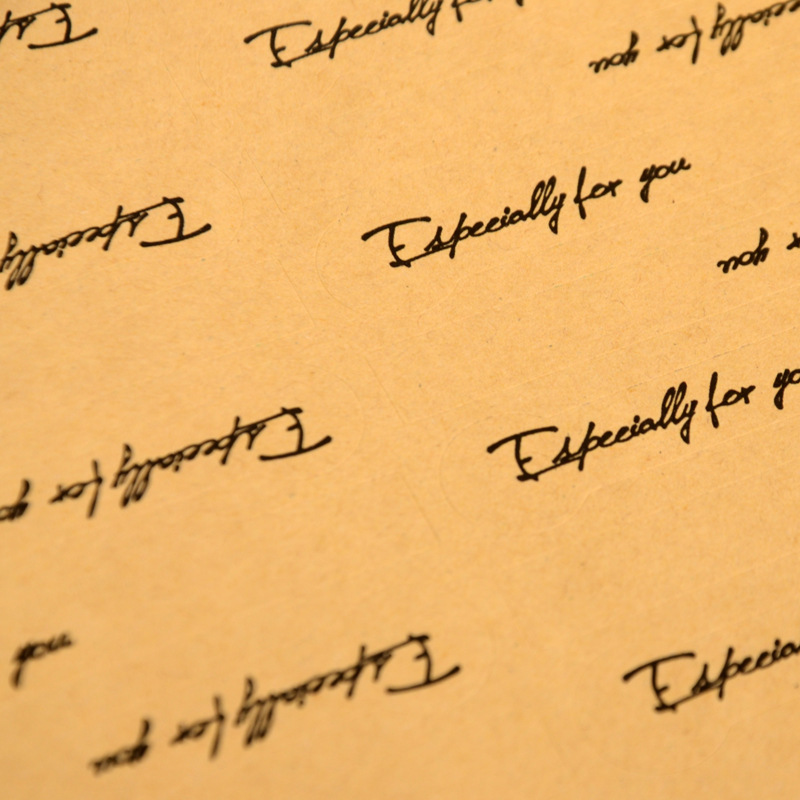 Especially for
for you
Especially
Especially for you
you
Especially for you
Especially for yo
you
Especially for you
Especia